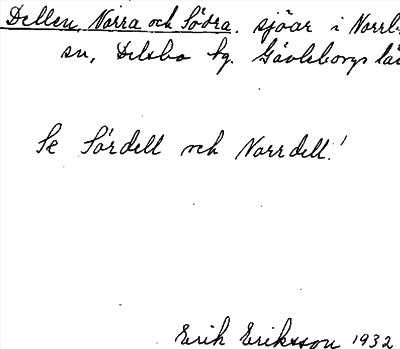 Dellen, Norra och Södra. sjöar i Norrb
sn, Delsbo tg. Gävleborgs län
Se Sördell och Norrdell!
Erik Eriksson 1932